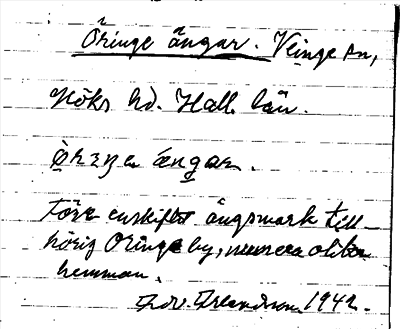 Öringe ängar. Veinge sn,
Höks hd. Hall. län.
ängar.
Före enskiftet ängsmark till-
hörig Öringe by, numera olika
hemman.
1942.